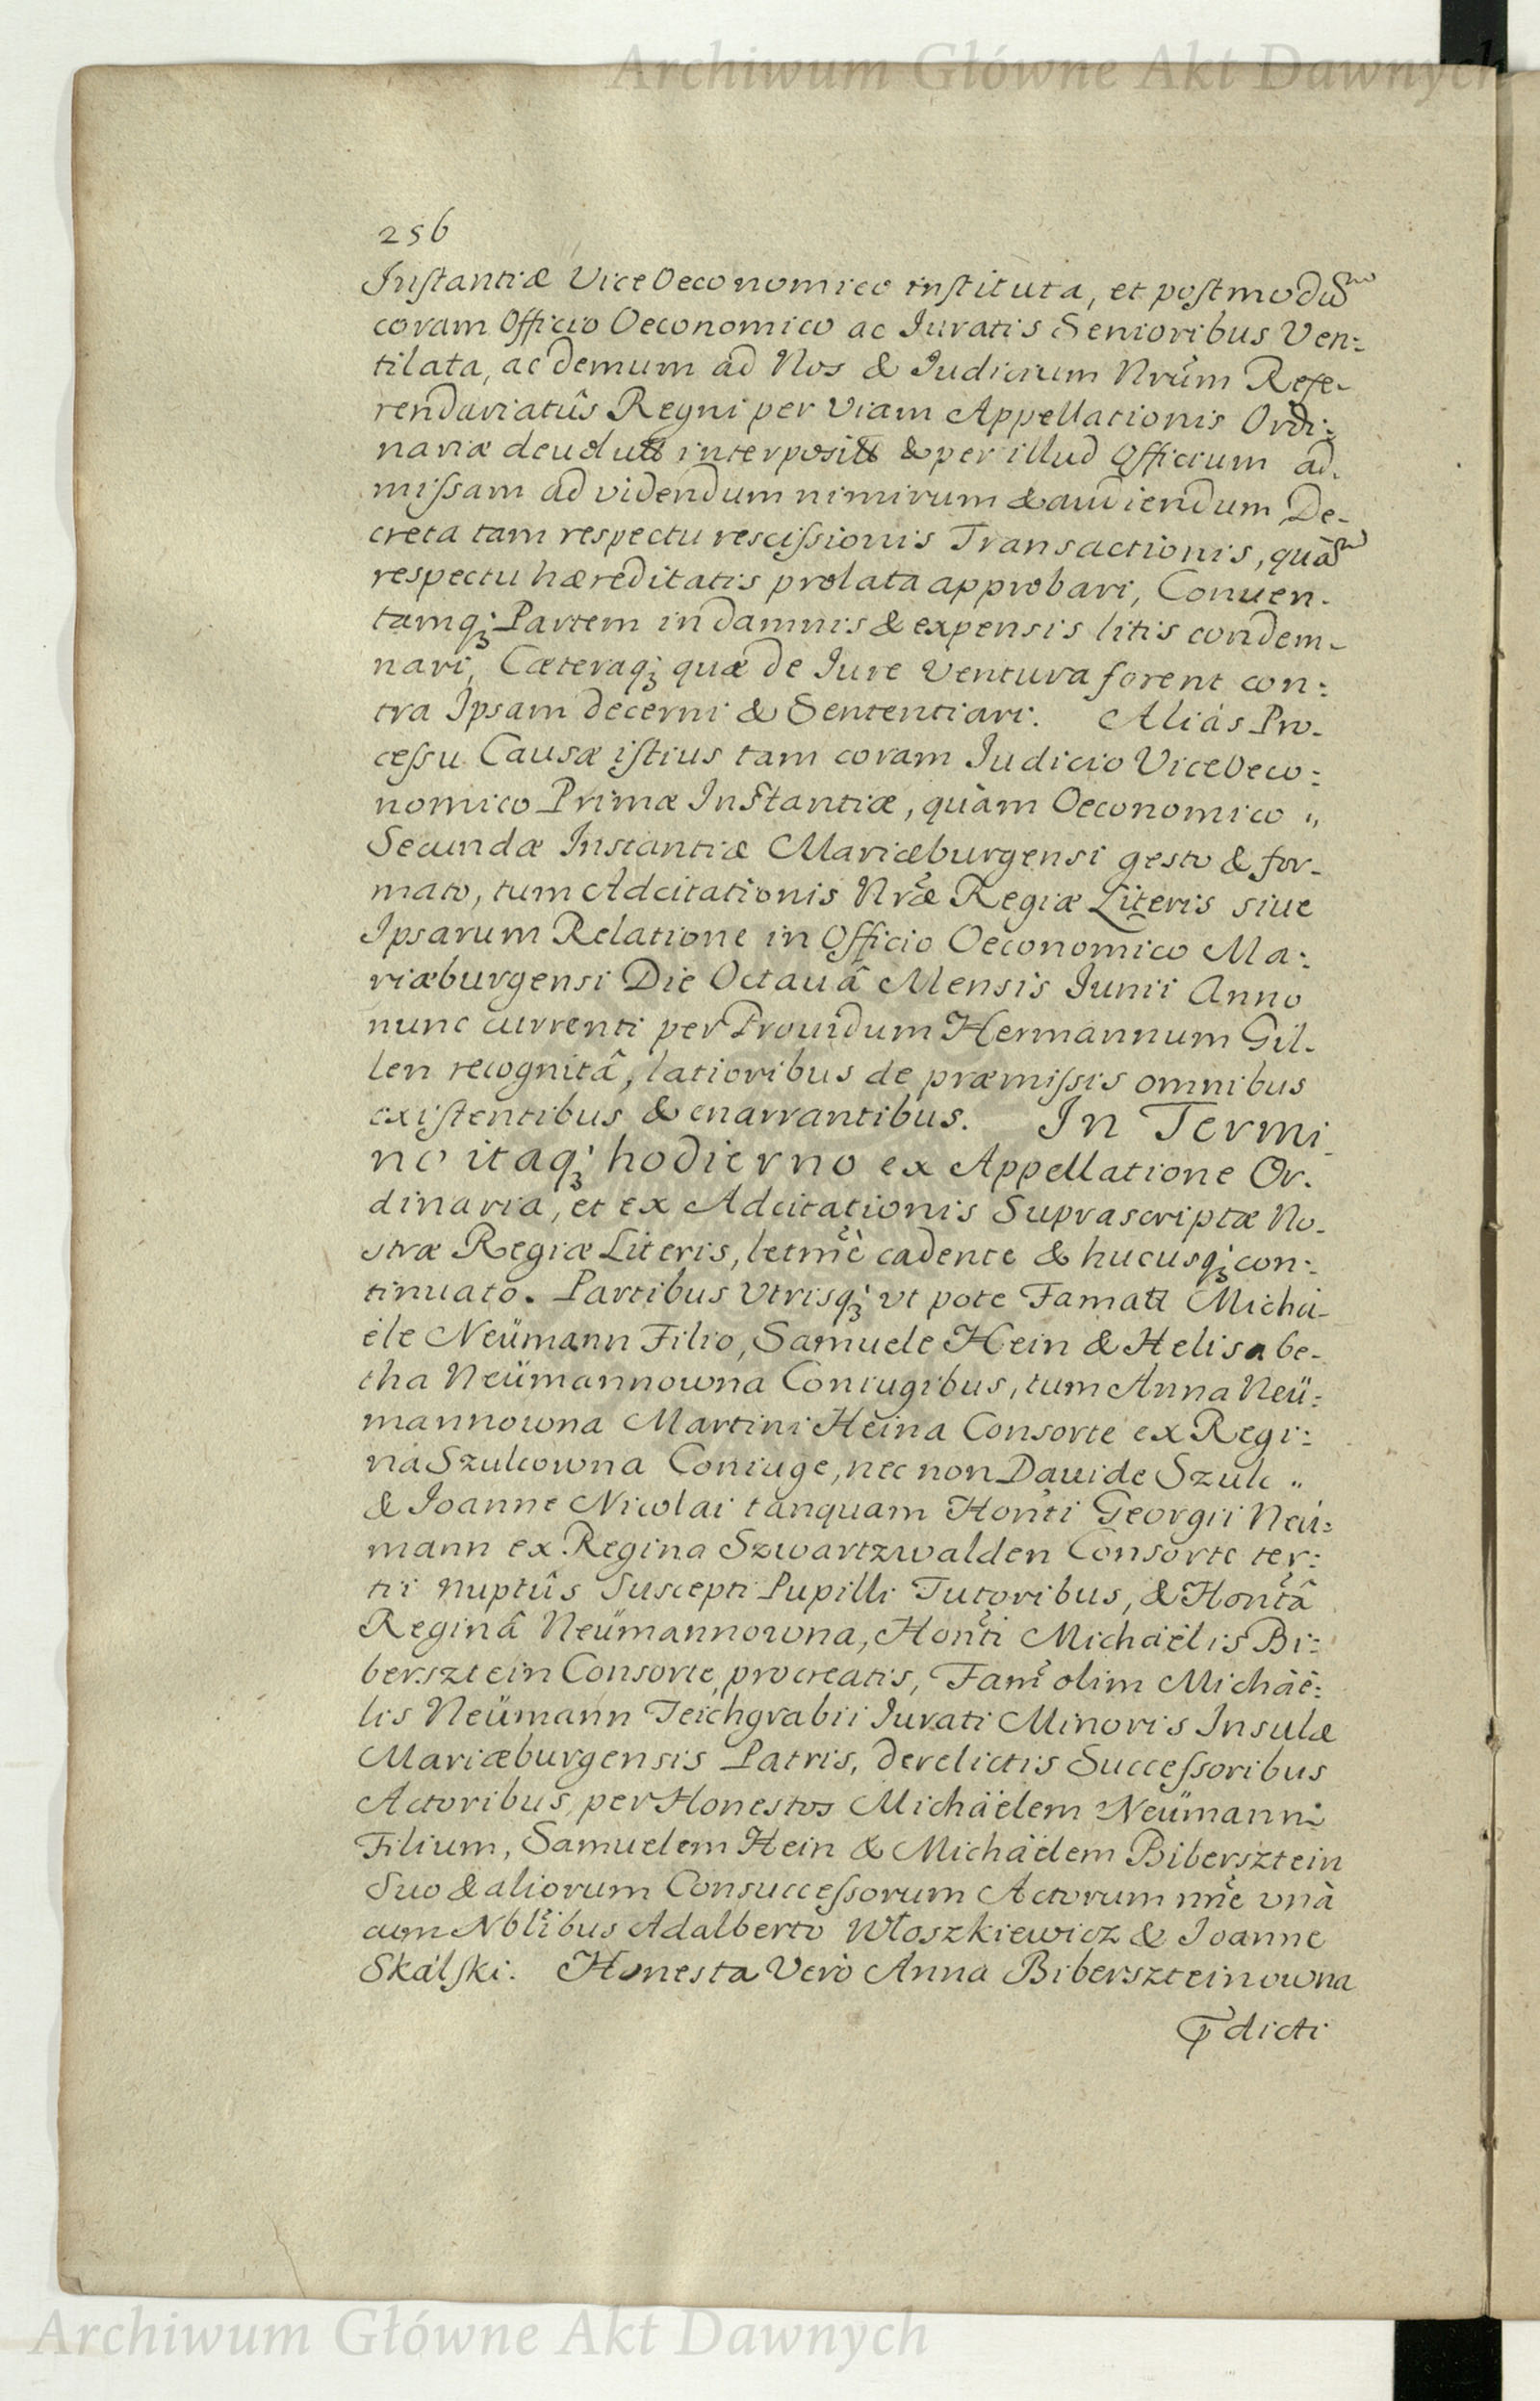 Archiwum Główne Akt Dawnych
256
Instantiæ ViceOeconomico instituta, et postmodũ
coram Officio Oeconomico ac Iuratis Senioribus Ven:
tilata, ac demum ad Nos & Iudicium Nrũm Refe-
rendariatûs Regni per viam Appellationis Ordi:
nariæ interposit & per illud Officium ad.
missam ad videndum nimirum & audiendum De-
creta tam respectu rescissionis Transactionis, quàm
respectu hæreditatis prolata approbari, Conuen-
tamq; Partem in damnis & expensis litis condem-
nari, Cæteraq; quæ de Iure ventura forent con:
tra Ipsam decerni & Sententiari. Aliàs Pro-
cessu Causæ istius tam coram Iudicio ViceOeco:
nomico Primæ Instantiæ, quàm Oeconomico "
Secundæ Instantiæ Mariæburgensi gesto & for-
mato, tum Adcitationis Nræ Regiæ Literis siue
Ipsarum Relatione in Officio Oeconomico Ma:
riæburgensi Die Octauâ Mensis Iunii Anno
nunc currenti per Prouidum Hermannum Gil-
len recognitâ, latioribus de præmissis omnibus
existentibus & enarrantibus. In Termi-
no itaq; hodierno ex Appellatione Or-
dinaria, et ex Adcitationis Suprascriptæ No-
stræ Regiæ Literis, letmè cadente & hucusq; con:
tinuato. Partibus Vtrisq; vt pote Famatt Micha-
ële Neümann Filio, Samuele Hein & Helisabe-
tha Neümannowna Coniugibus, tum Anna Neü:
mannowna Martini Heina Consorte ex Regi:
na Szulcowna Coniuge, nec non Dauide Szulc "
& Ioanne Nicolai tanquam Honti Georgii Neü:
mann ex Regina Szwartzwalden Consorte ter:
tii nuptûs Suscepti Pupilli Tutoribus, & Hontâ
Reginâ Neümannowna, Honti Michäelis Bi:
bersztein Consorte, procreatis, Fam olim Michäë:
lis Neümann Teichgrabii Iurati Minoris Insulæ
Mariæburgensis Patris, derelictis Successoribus
Actoribus, per Honestos Michäelem Neümann:
Filium, Samuelem Hein & Michäelem Bibersztein
Suo & aliorum Consuccessorum Actorum nñe vnà
cum Nblibus Adalberto Włoszkiewicz & Ioanne
Skálski. Honesta Verò Anna Biberszteinowna
p̃dicti
Archiwum Główne Akt Dawnych